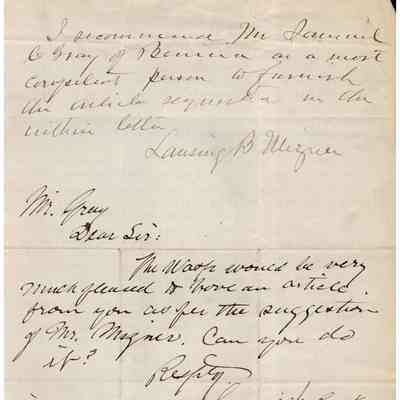 I recommend Mr Samuel
C Gray of Benicia as a most
competent person to furnish
the article requested in the
within letter
Lansing B Mizner
Mr. Gray
Dear Sir:
The Wasp would be very
much pleased to have an article
from you as per the suggestion
of Mr. Mizner. Can you do
it?
Respty